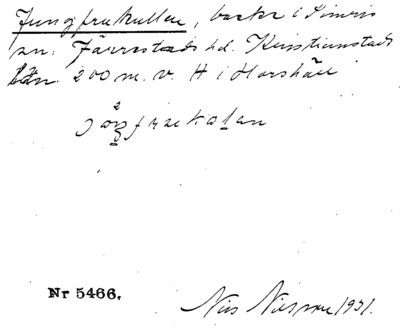 Jungfrukullen, backe i Simris
sn. Järrestads hd. Kristianstads
län. 200 m. v. H i Horshall
Nr 5466.
Nils Nilsson 1931.